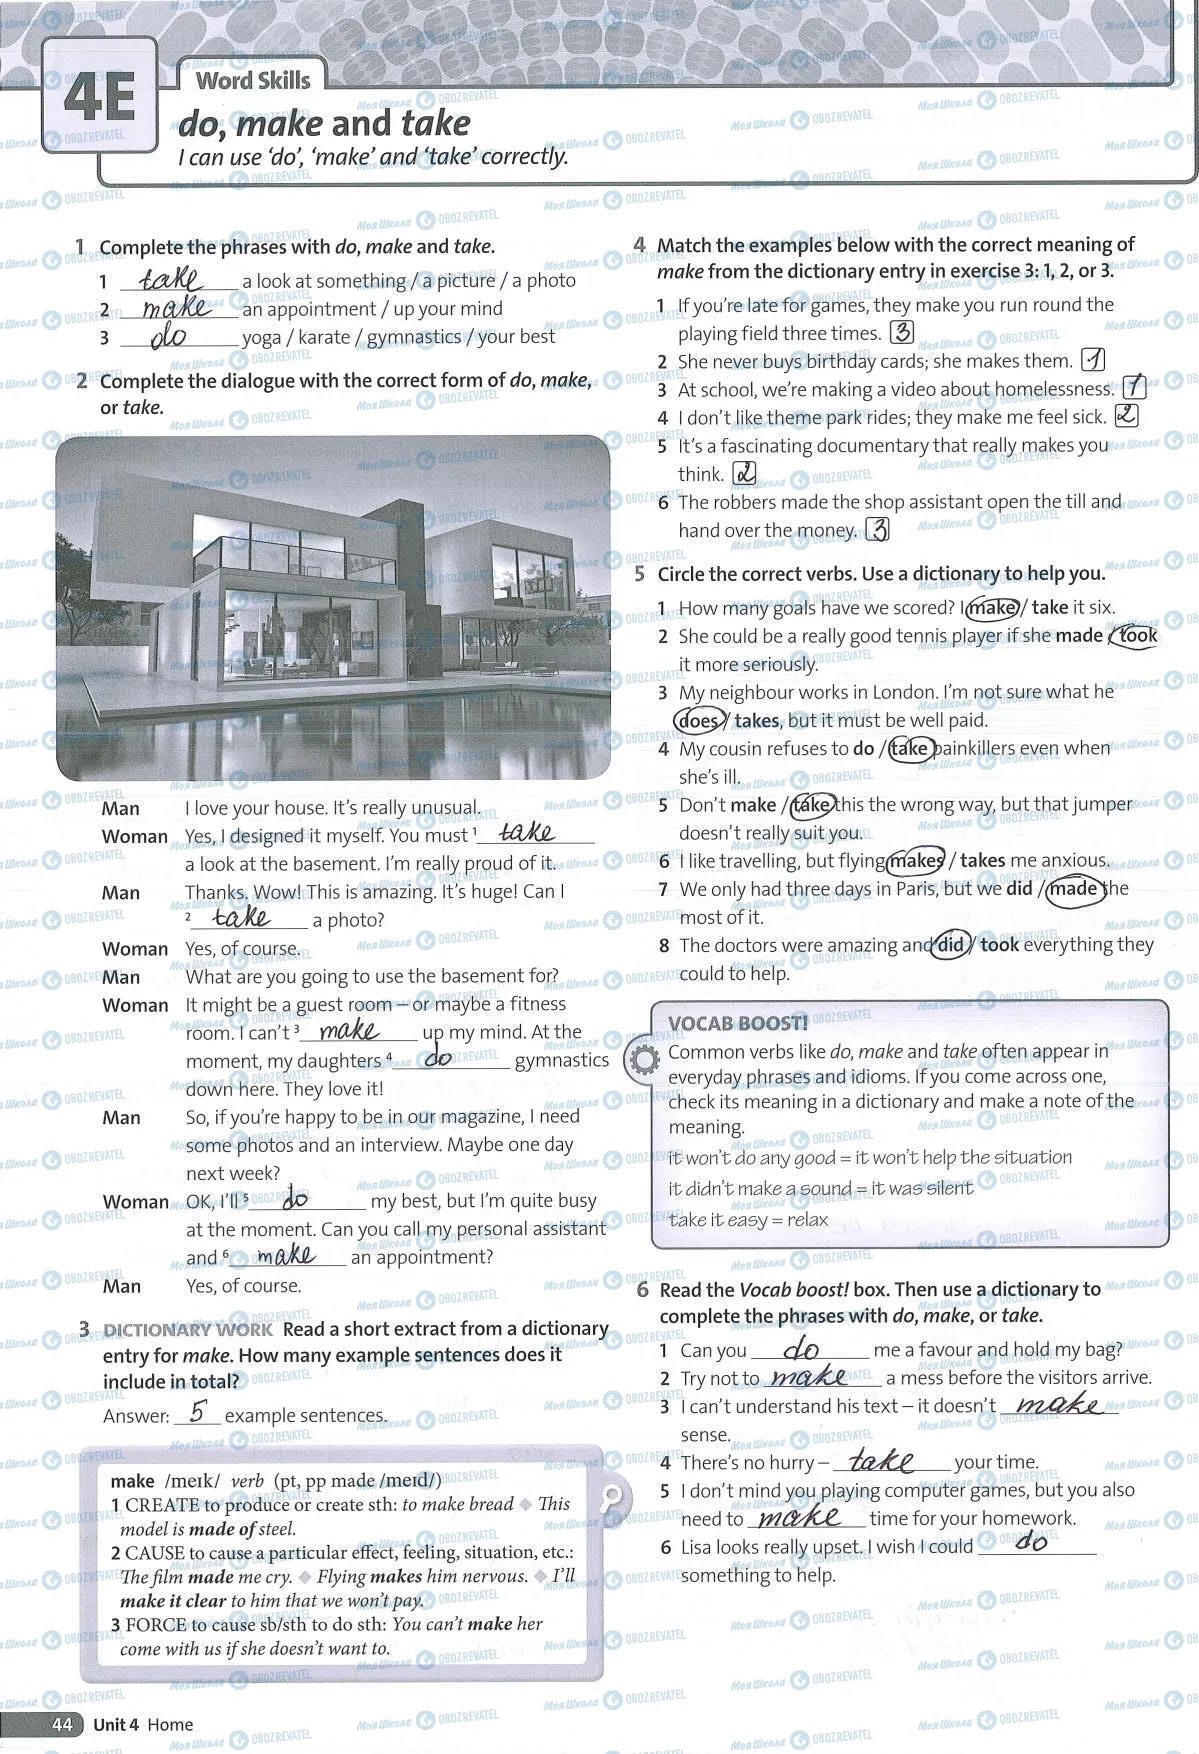 4E
Word Skills
do, make and take
I can use ‘do’, ‘make’ and ‘take’ correctly.
1 Complete the phrases with do, make and take.
1 take a look at something / a picture / a photo
2 make an appointment / up your mind
3 do yoga / karate / gymnastics / your best
2 Complete the dialogue with the correct form of do, make,
or take.
Man I love your house. It’s really unusual.
Woman Yes, I designed it myself. You must 1 take
a look at the basement. I’m really proud of it.
Man Thanks. Wow! This is amazing. It’s huge! Can I
2 take a photo?
Woman Yes, of course.
Man What are you going to use the basement for?
Woman It might be a guest room – or maybe a fitness
room. I can’t 3 make up my mind. At the
moment, my daughters 4 do gymnastics
down here. They love it!
Man So, if you’re happy to be in our magazine, I need
some photos and an interview. Maybe one day
next week?
Woman OK, I’ll 5 do my best, but I’m quite busy
at the moment. Can you call my personal assistant
and 6 make an appointment?
Man Yes, of course.
3 DICTIONARY WORK Read a short extract from a dictionary
entry for make. How many example sentences does it
include in total?
Answer: 5 example sentences.
make /meɪk/ verb (pt, pp made /meɪd/)
1 CREATE to produce or create sth: to make bread ◆ This
model is made of steel.
2 CAUSE to cause a particular effect, feeling, situation, etc.:
The film made me cry. ◆ Flying makes him nervous. ◆ I’ll
make it clear to him that we won’t pay.
3 FORCE to cause sb/sth to do sth: You can’t make her
come with us if she doesn’t want to.
44 Unit 4 Home
4 Match the examples below with the correct meaning of
make from the dictionary entry in exercise 3: 1, 2, or 3.
1 If you’re late for games, they make you run round the
playing field three times. 3
2 She never buys birthday cards; she makes them. 1
3 At school, we’re making a video about homelessness. 1
4 I don’t like theme park rides; they make me feel sick. 2
5 It’s a fascinating documentary that really makes you
think. 2
6 The robbers made the shop assistant open the till and
hand over the money. 3
5 Circle the correct verbs. Use a dictionary to help you.
1 How many goals have we scored? I make / take it six.
2 She could be a really good tennis player if she made / took
it more seriously.
3 My neighbour works in London. I’m not sure what he
does / takes, but it must be well paid.
4 My cousin refuses to do / take painkillers even when
she’s ill.
5 Don’t make / take this the wrong way, but that jumper
doesn’t really suit you.
6 I like travelling, but flying makes / takes me anxious.
7 We only had three days in Paris, but we did / made the
most of it.
8 The doctors were amazing and did / took everything they
could to help.
VOCAB BOOST!
Common verbs like do, make and take often appear in
everyday phrases and idioms. If you come across one,
check its meaning in a dictionary and make a note of the
meaning.
it won’t do any good = it won’t help the situation
it didn’t make a sound = it was silent
take it easy = relax
6 Read the Vocab boost! box. Then use a dictionary to
complete the phrases with do, make, or take.
1 Can you do me a favour and hold my bag?
2 Try not to make a mess before the visitors arrive.
3 I can’t understand his text – it doesn’t make
sense.
4 There’s no hurry – take your time.
5 I don’t mind you playing computer games, but you also
need to make time for your homework.
6 Lisa looks really upset. I wish I could do
something to help.
Моя Школа OBOZREVATEL